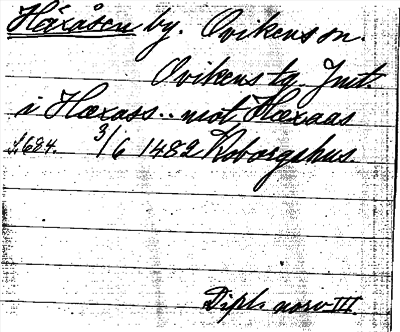 Häxåsen by. Ovikens sn.
Ovikens tg. Jmt.
i Hæxass.. mot Hæxaas
s. 684. 3/6 1482 Roborgshus.
Dipl. norv III.